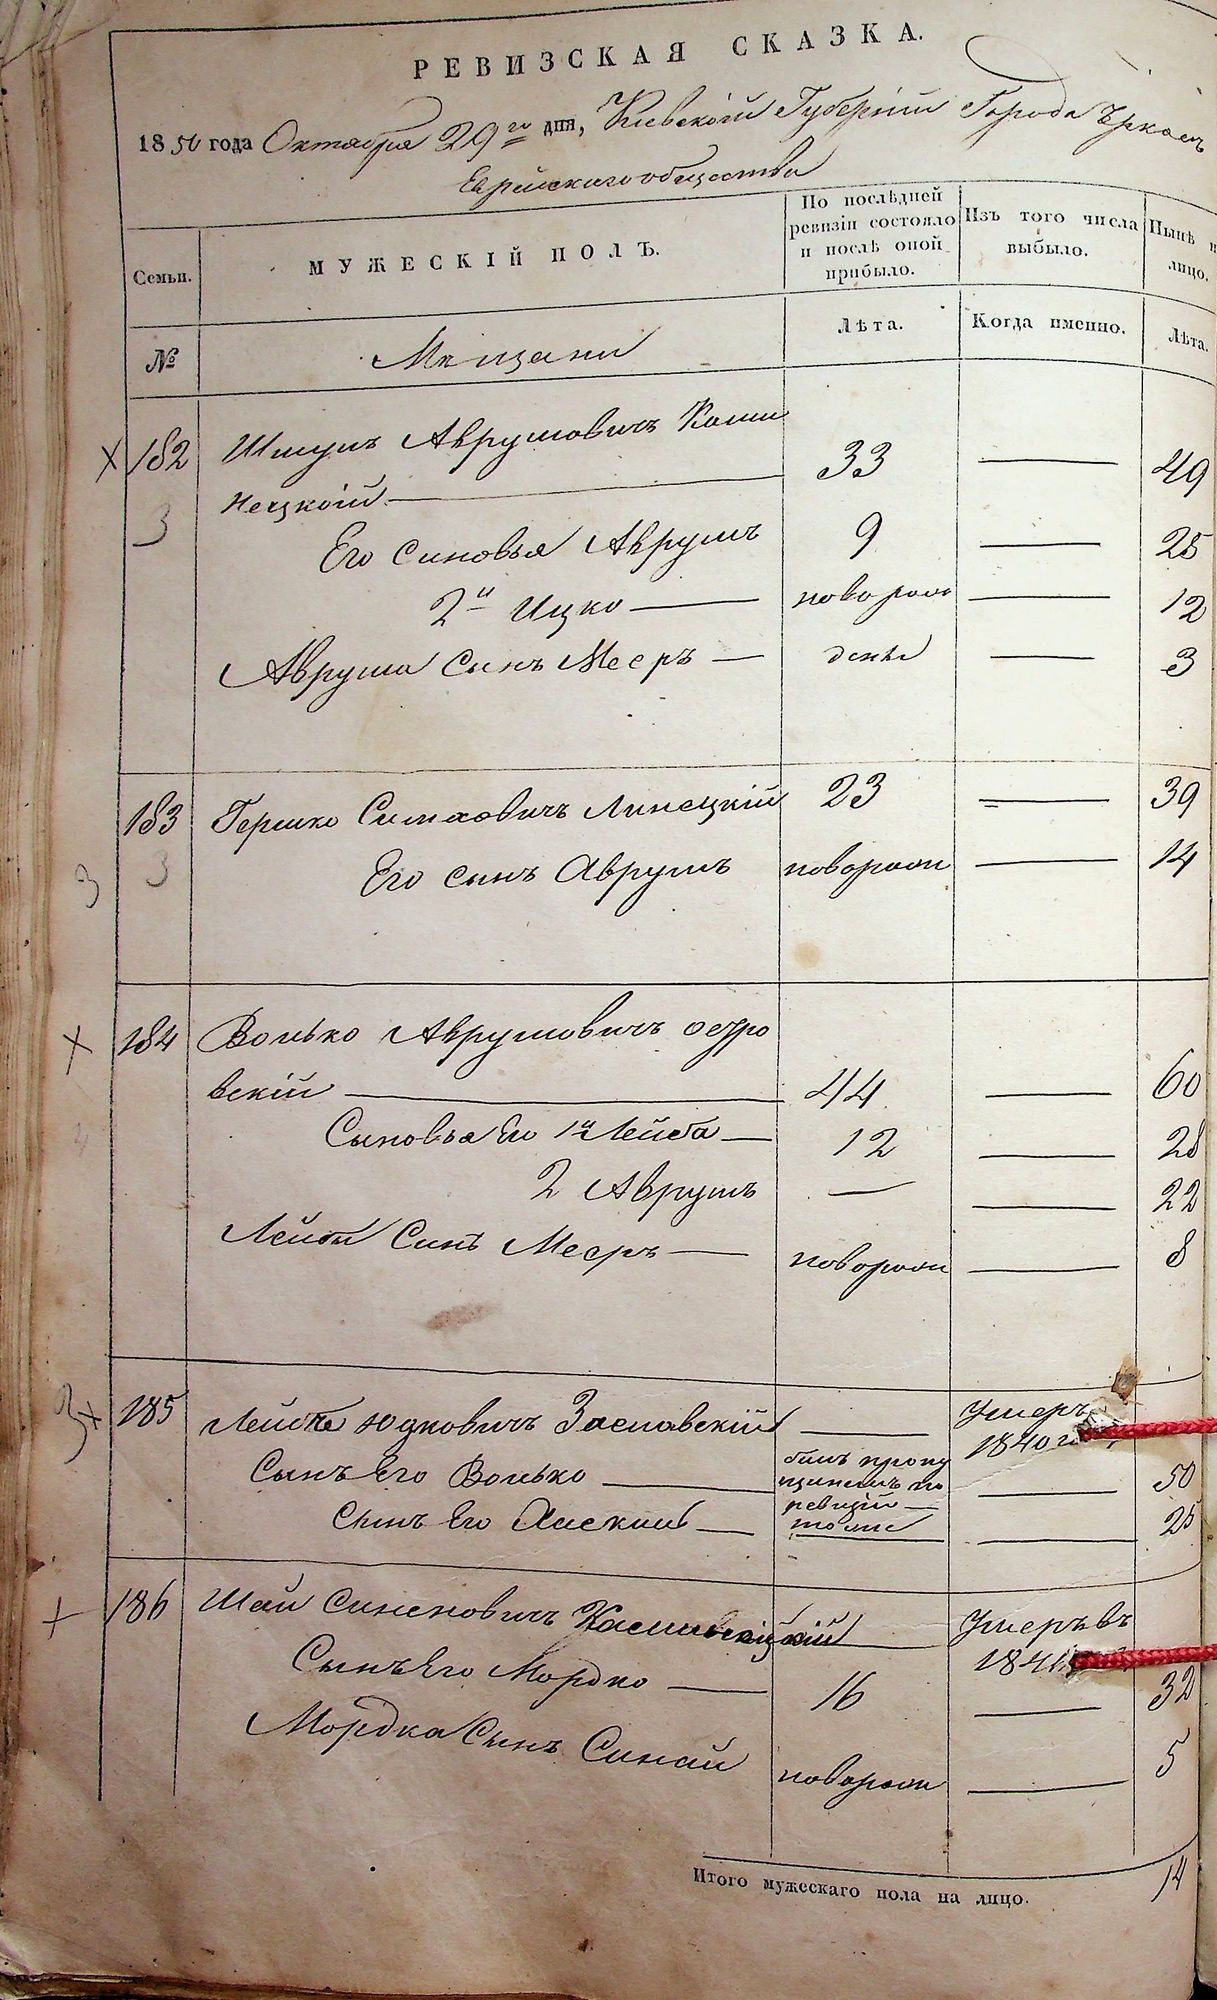 РЕВИЗСКАЯ СКАЗКА.
1850 года Октября 29го дня, Киевской Губернии Города Черкас
Еврейскаго общества
Семьи.
МУЖЕСКІЙ ПОЛЪ.
По послѣдней ревизіи состояло и послѣ оной прибыло.
Изъ того числа выбыло.
Нынѣ на лицо.
№
Мещани
Лѣта.
Когда именно.
Лѣта.
182 Шмуль Аврумовичъ Камы
нецкій 33 49
3
Его синовья Аврумъ 9 25
2й Ицко новорож 12
Аврума сынъ Мееръ денъ 3
183 Гершко Симховичъ Линецкій 23 39
3 3
Его сынъ Аврумъ новорож 14
184 Волько Аврумовичъ остро
вскій 44 60
Сыновья Его 1й Лейба 12 28
2 Аврумъ — 22
Лейбы Синъ Мееръ новорож 8
185 Лейба Юдковичъ Заславскій Умеръ
1840
Сынъ Его Волько былъ пропу
щенъ по
ревизіи 50
Сынъ Его тоже 25
186 Шая Синеновичъ Умеръ въ
184
Сынъ Его Мордко 16 32
Мордка Сынъ Синай новорож 5
Итого мужескаго пола на лицо. 14